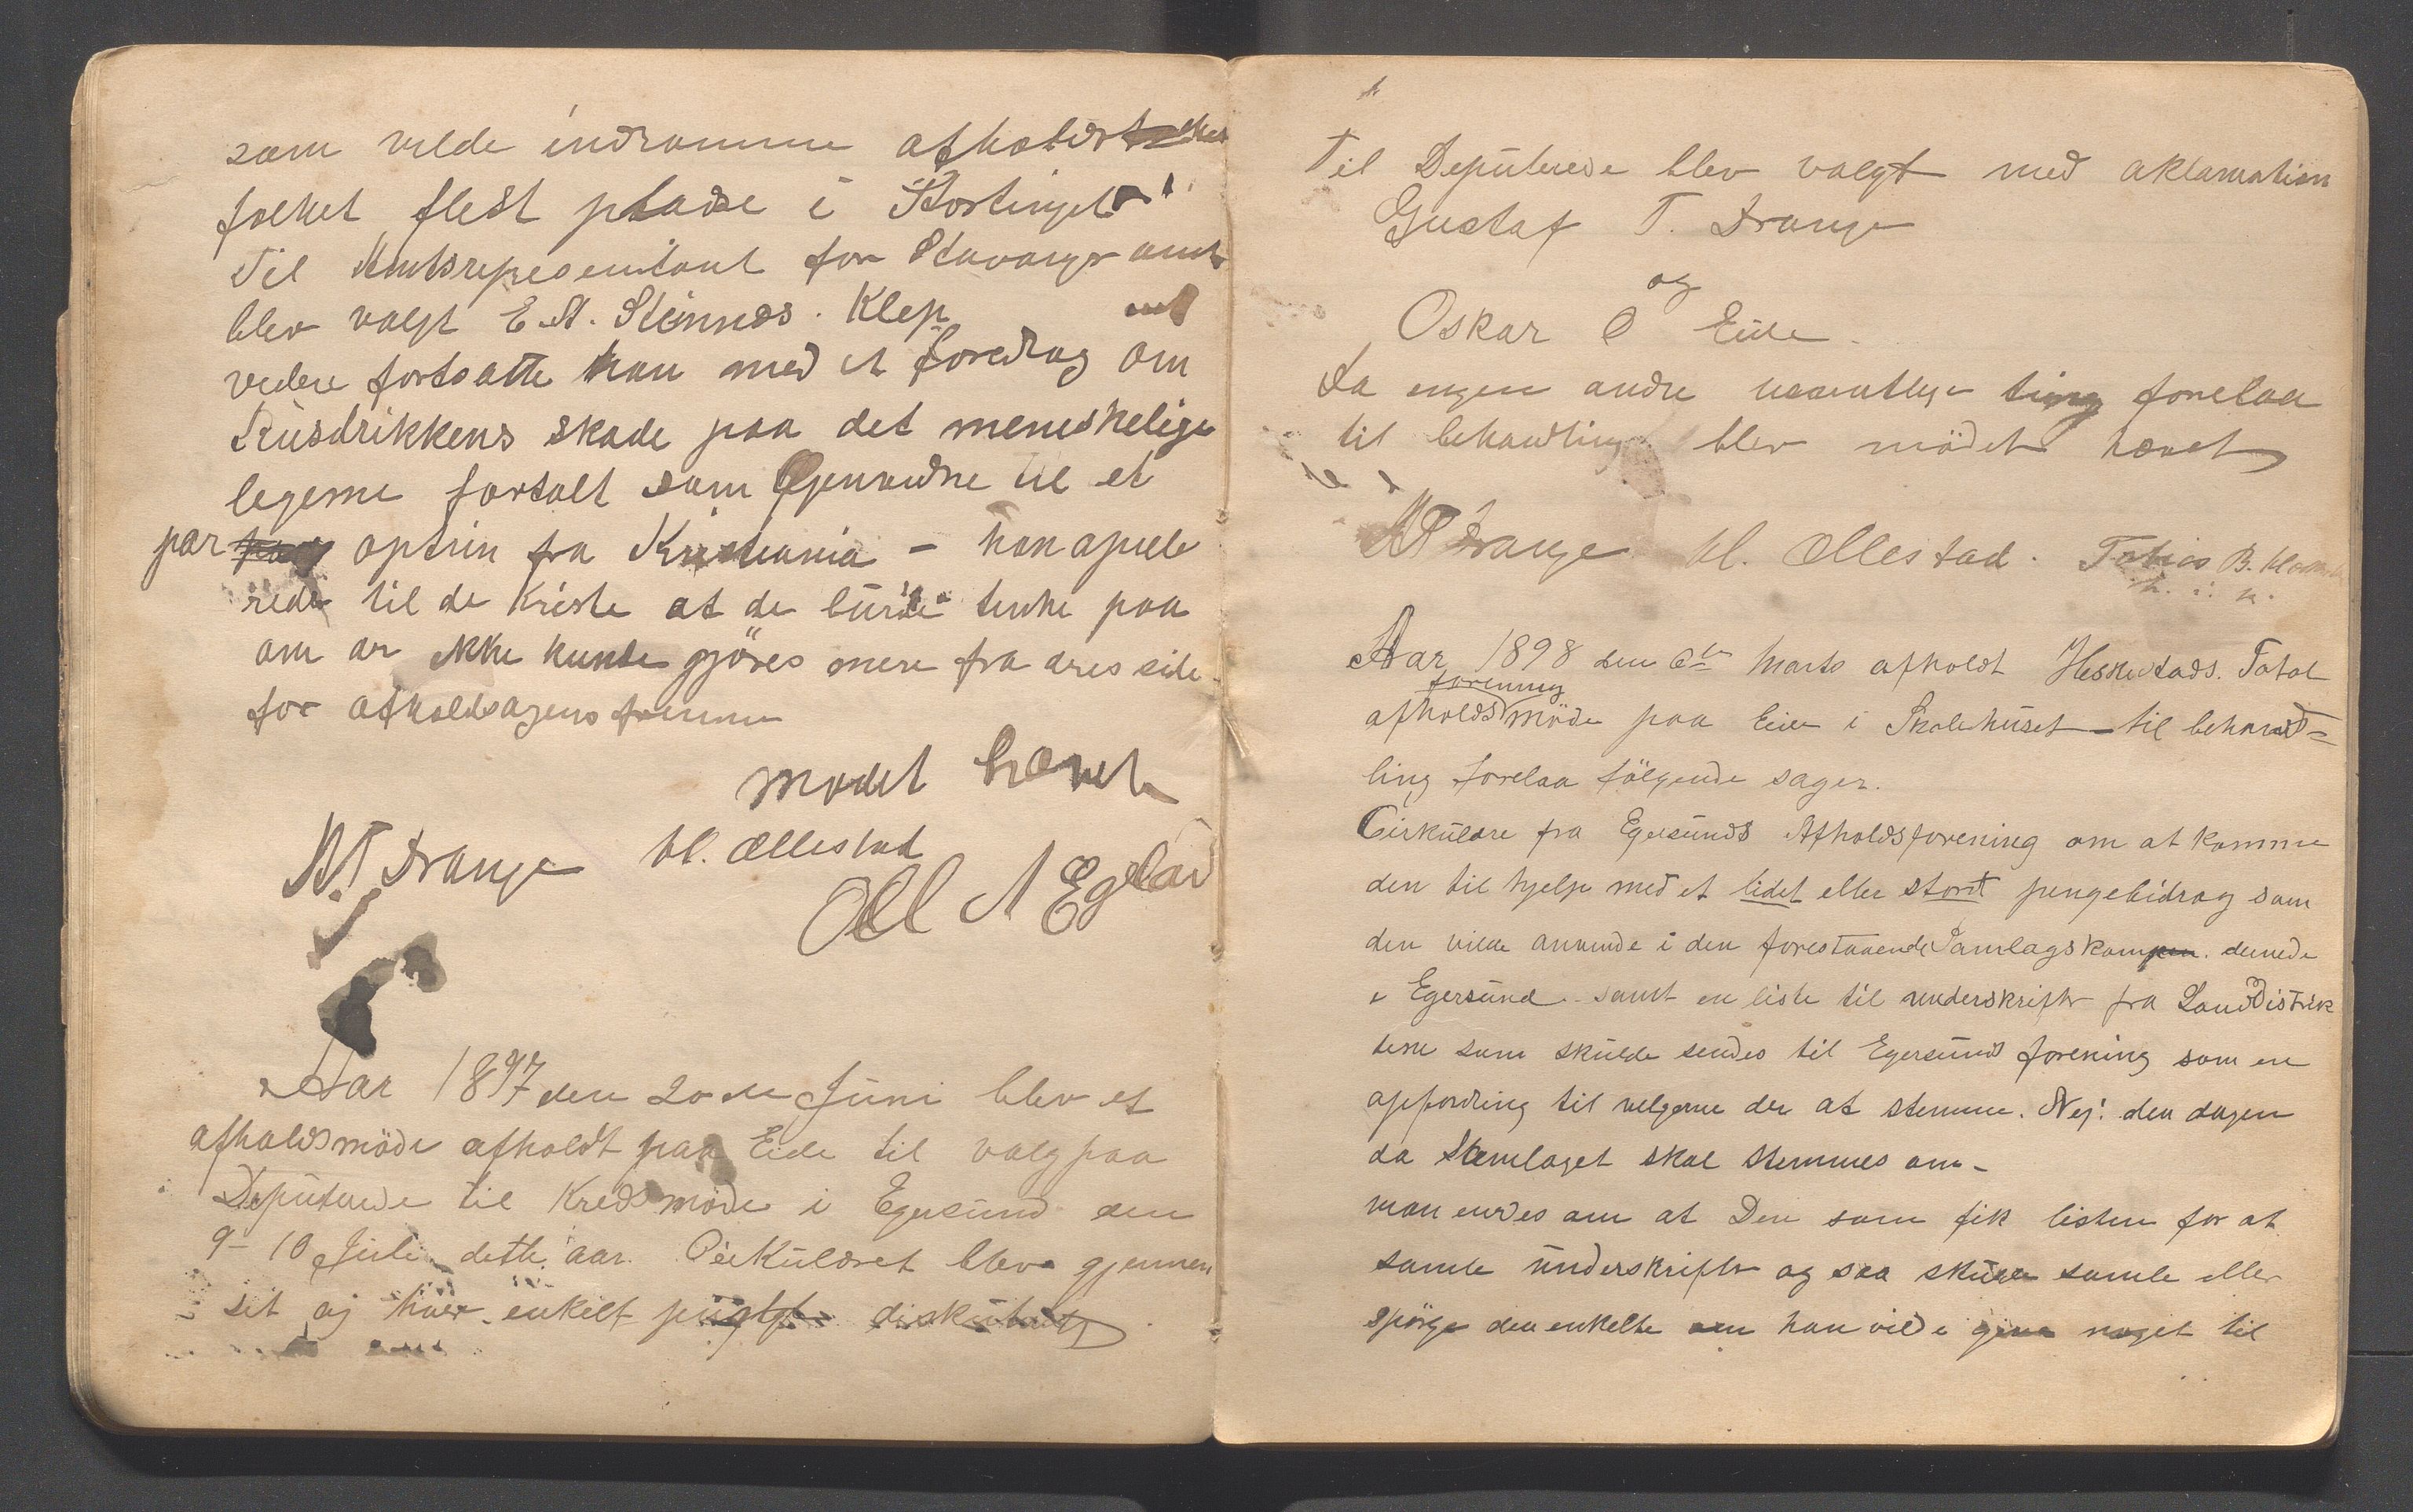 som vilde indrømme afholds
folket flest pladse i Stortinget
Til Amtsrepresentant for Stavanger amt
blev valgt E. A. Stinnes. Klep
videre fortsatte han med et foredrag om
Rusdrikkens skade paa det meneskelige
legeme fortalt som Øjenvidne til et
par optrin fra Kristiania - han apele
rede til de Kriste at de burde tenke paa
om der ikke kunde gjöres mere fra deres side
for afholdsagens fremme
modet hævet
N. T. Drange M. Ollestad
Oll A Eglad
Aar 1897 den 20de Juni blev et
afholdsmöde afholdt paa Eide til valg paa
Deputerede til Kredsmöde i Egersund den
9-10 Juli dette aar. Cirkulæret blev gjennem
set og hver enkelt punkt diskuteret
Til Deputerede blev valgt med aklamation
Gustaf T. Drange
og
Oskar O Eide.
Da ingen andre vesentlige ting forelaa
til behandling blev mödet hævet
N T Drange M. Ollestad. Tobias B.
Aar 1898 den 6te Marts afholdt Heskestads. Total
forening
afholds möde paa Eide i Skolehuset - til behand=
ling forelaa fölgende sager.
Cirkulære fra Egersunds Afholdsforening om at komme
den til hjelp med et lidet eller stort pengebidrag som
den vilde anvende i den forestaaende Samlagskampen dernede
i Egersund samt en liste til underskrifter fra Landdistrik
terne som skulde sendes til Egersunds forening som en
opfordring til velgerne der at stemme. Nej! den dagen
da Samlaget skal stemmes om -
man endes om at Den som fik listen for at
samle underskrifter og saa skulde samle eller
spörge den enkelte om han vilde give noget til